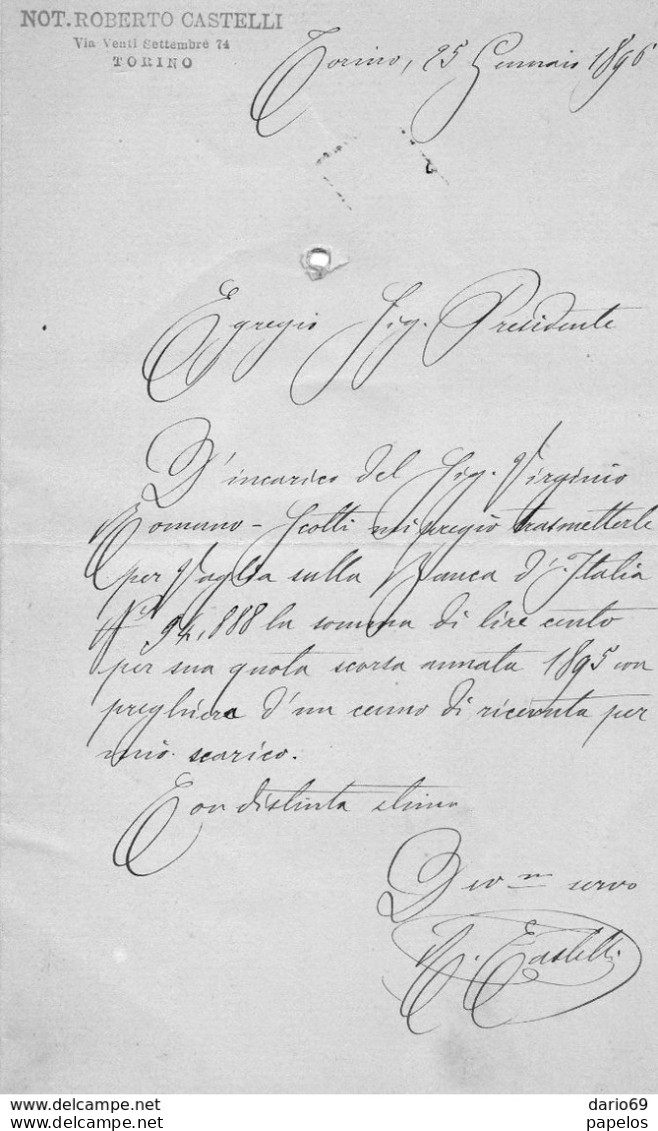 NOT. ROBERTO CASTELLI
Via Venti Settembre 74
TORINO
Torino, 25 Gennaio 1896
Egregio Sig. Presidente
D'incarico del Sig. Virginio
Romano-Scotti mi pregio trasmetterle
per Vaglia sulla Banca d'Italia
N° 94,888 la somma di lire cento
per sua quota scorsa annata 1895 con
preghiera d'un cenno di ricevuta per
mio scarico.
Con distinta stima
Dev.mo servo
R. Castelli
dario69
papelos